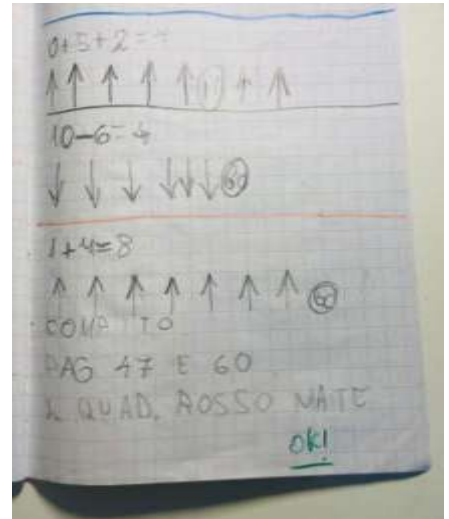 0+5+2=7
10-6=4
1+4=8
COMPITO
PAG 47 E 60
QUAD. ROSSO MATE
OK!